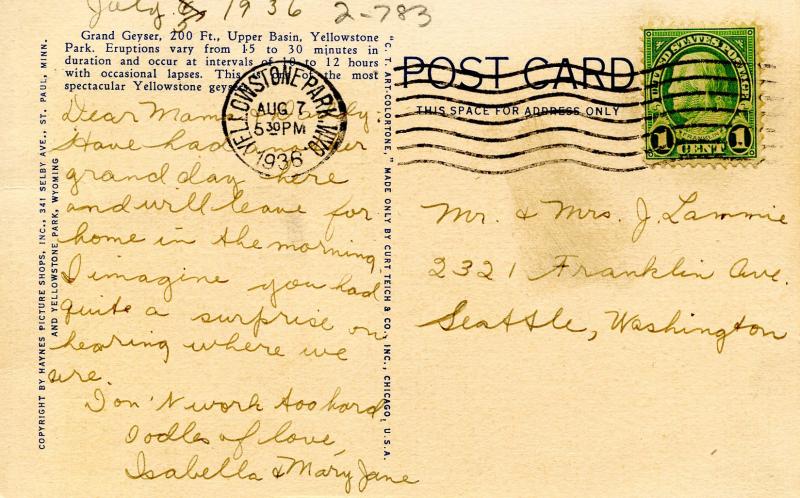 July 5 1936 2-783
Grand Geyser, 200 Ft., Upper Basin, Yellowstone
Park. Eruptions vary from 15 to 30 minutes in
duration and occur at intervals of 10 to 12 hours
with occasional lapses. This is one of the most
spectacular Yellowstone geysers.
COPYRIGHT BY HAYNES PICTURE SHOPS, INC., 341 SELBY AVE., ST. PAUL, MINN.
AND YELLOWSTONE PARK, WYOMING
"C. T. ART-COLORTONE," MADE ONLY BY CURT TEICH & CO., INC., CHICAGO, U.S.A.
YELLOWSTONE PARK, WYO.
AUG 7
5 30 PM
1936
POST CARD
THIS SPACE FOR ADDRESS ONLY
UNITED STATES POSTAGE
1 CENT 1
Dear Mama &
Have had another
grand day here
and will leave for
home in the morning.
I imagine you had
quite a surprise on
hearing where we
are.
Don't work too hard
Oodles of love,
Isabella & Mary Jane
Mr. & Mrs. J. Lammie
2321 Franklin Ave.
Seattle, Washington